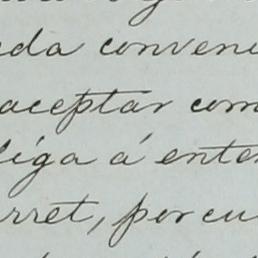 eda conveni
aceptar com
liga á enter
rret, por cu